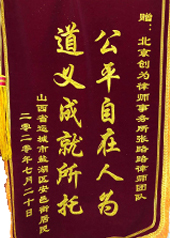 赠：北京创为律师事务所张路路律师团队
公平自在人为
道义成就所托
山西省运城市盐湖区安邑街居民
二零二零年七月二十日